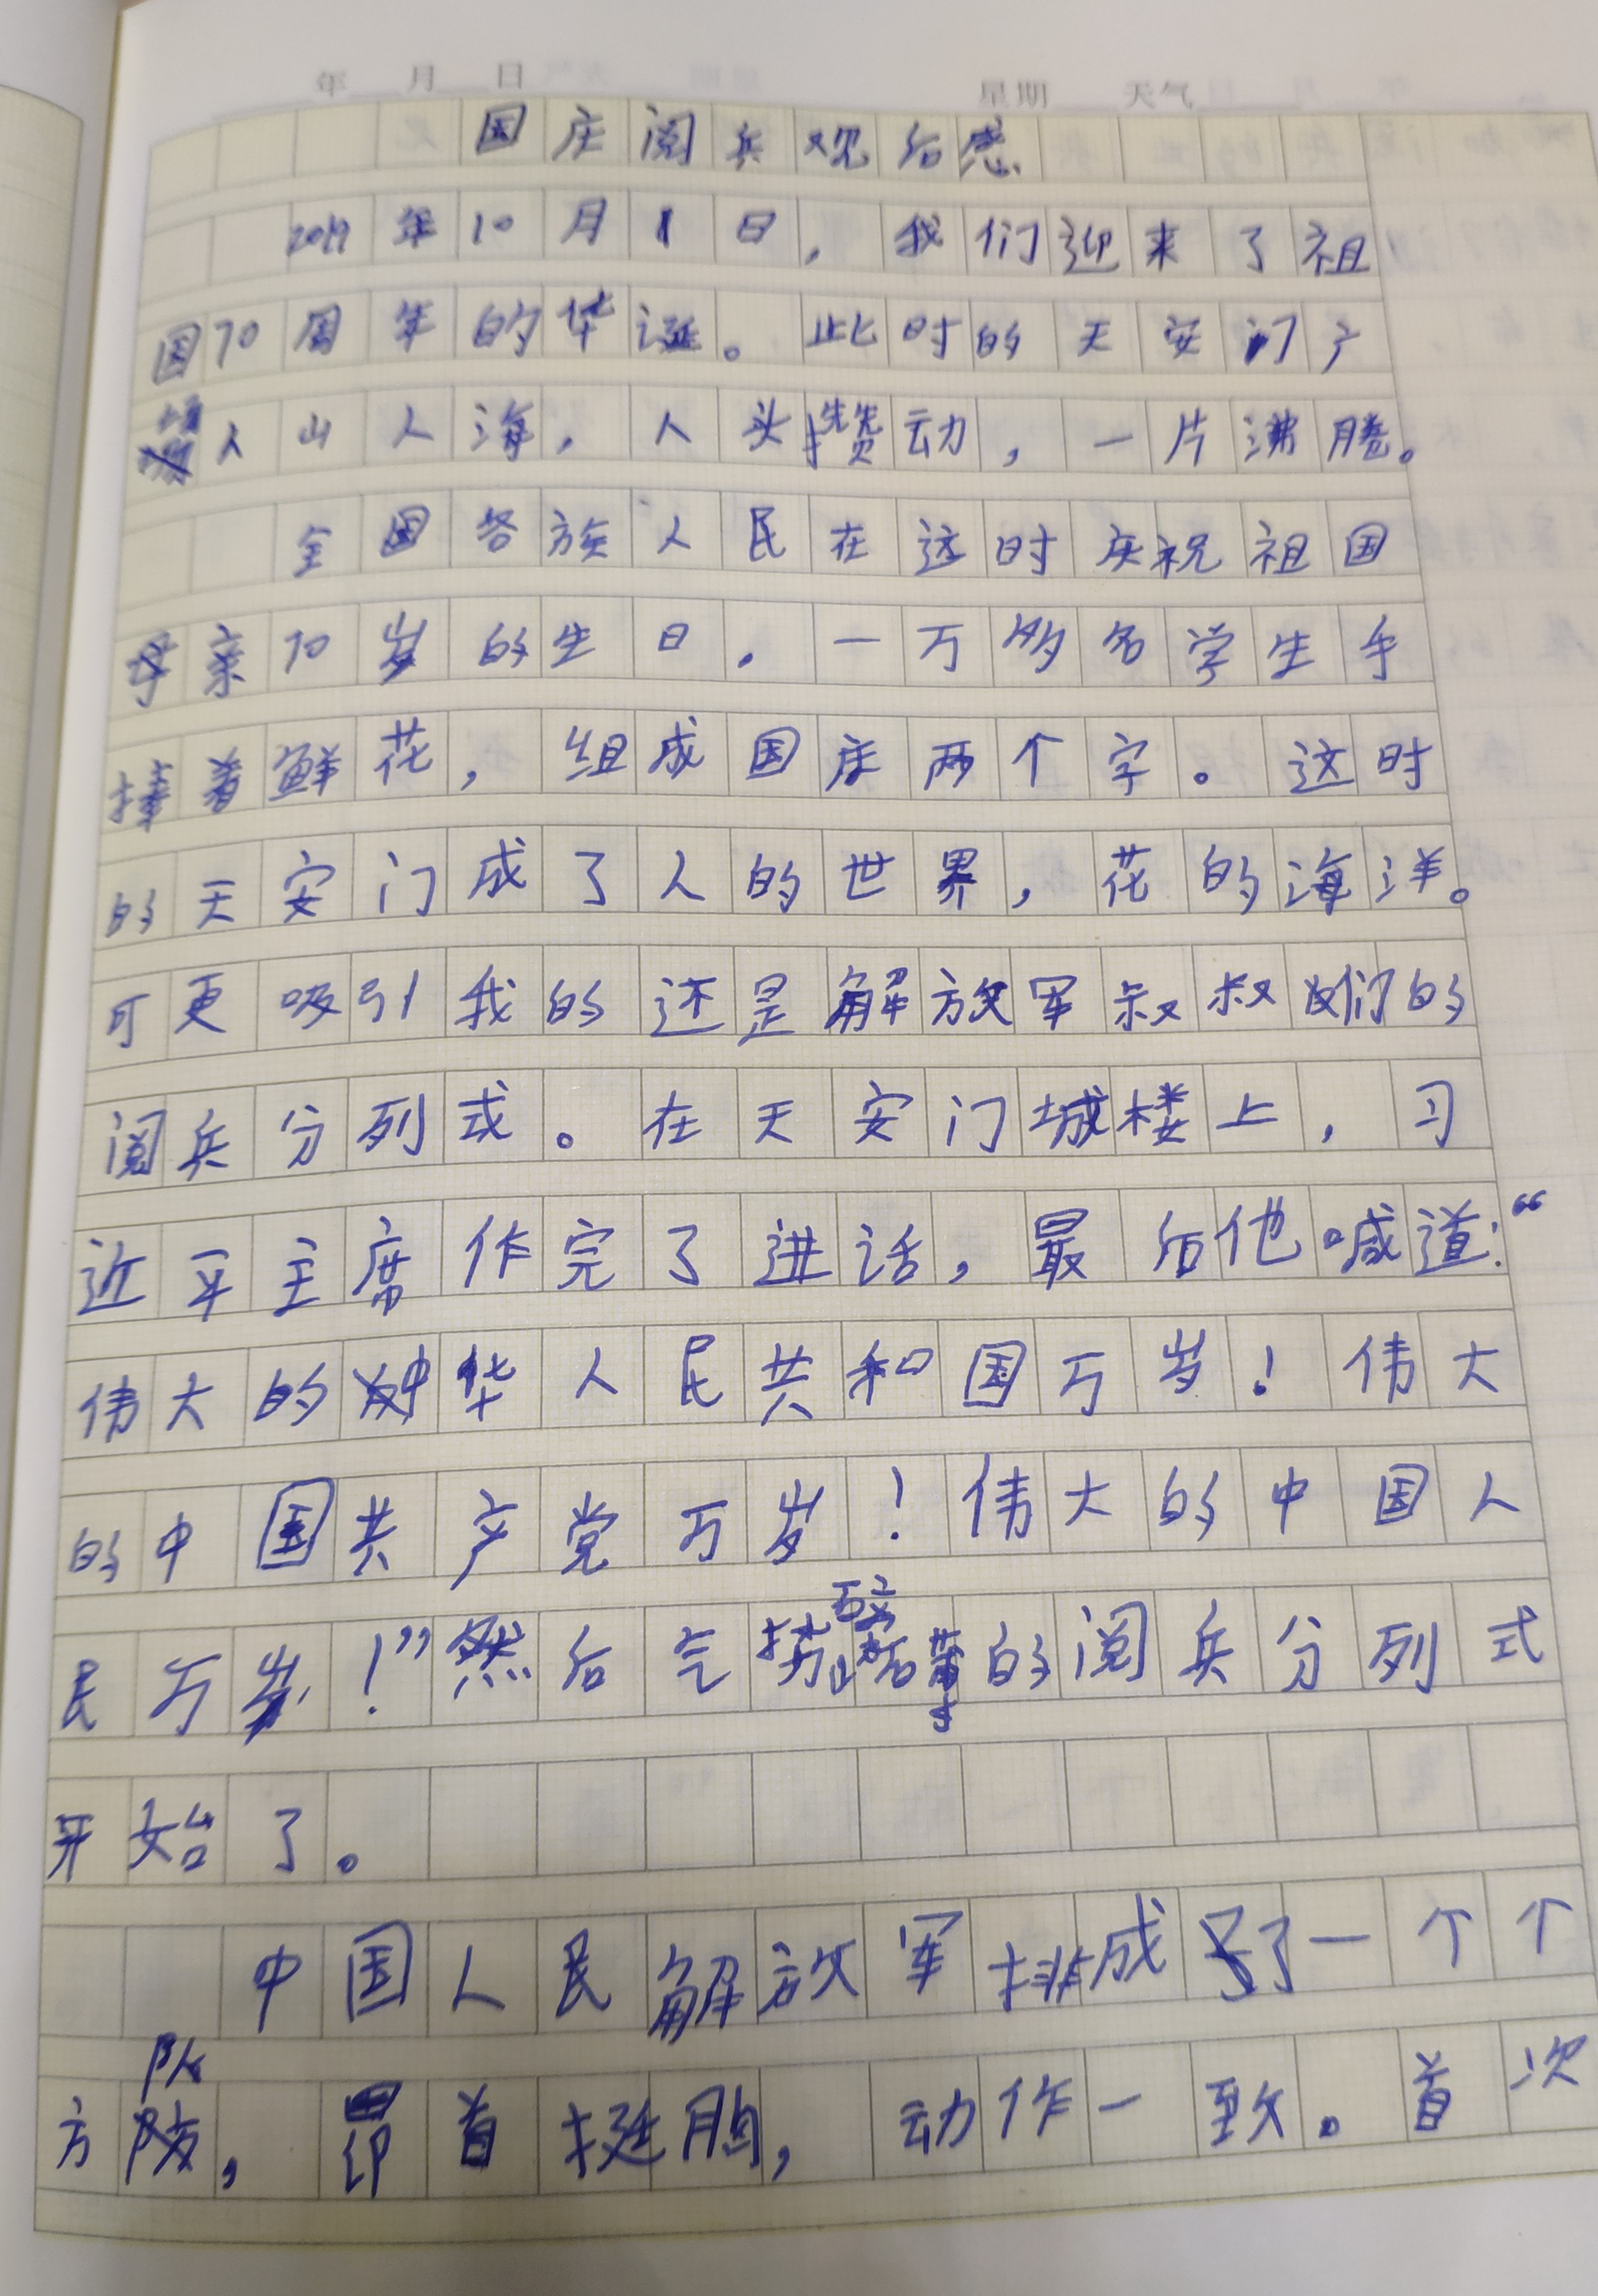 年 月 日 星期 天气
国庆阅兵观后感
2019年10月1日，我们迎来了祖
国70周年的华诞。此时的天安门广
场人山人海，人头攒动，一片沸腾。
全国各族人民在这时庆祝祖国
母亲70岁的生日。一万多名学生手
捧着鲜花，组成国庆两个字。这时
的天安门成了人的世界，花的海洋。
可更吸引我的还是解放军叔叔们的
阅兵分列式。在天安门城楼上，习
近平主席作完了讲话，最后他喊道：“
伟大的中华人民共和国万岁！伟大
的中国共产党万岁！伟大的中国人
民万岁！”然后气势磅礴的阅兵分列式
开始了。
中国人民解放军排成了一个个
方队，昂首挺胸，动作一致。首次